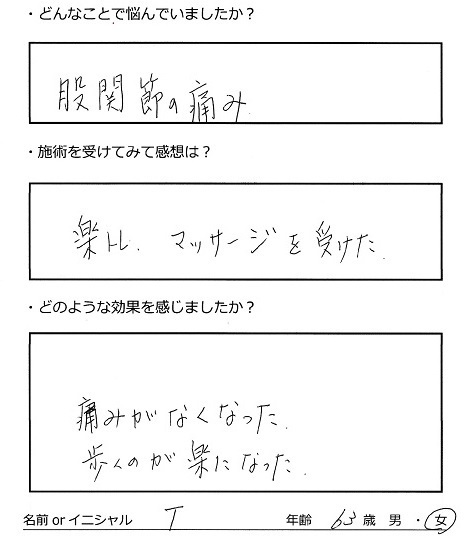 ・どんなことで悩んでいましたか？
股関節の痛み
・施術を受けてみて感想は？
楽トレ、マッサージを受けた.
・どのような効果を感じましたか？
痛みがなくなった.
歩くのが楽になった.
名前 or イニシャル T 年齢 63 歳 男 ・ 女